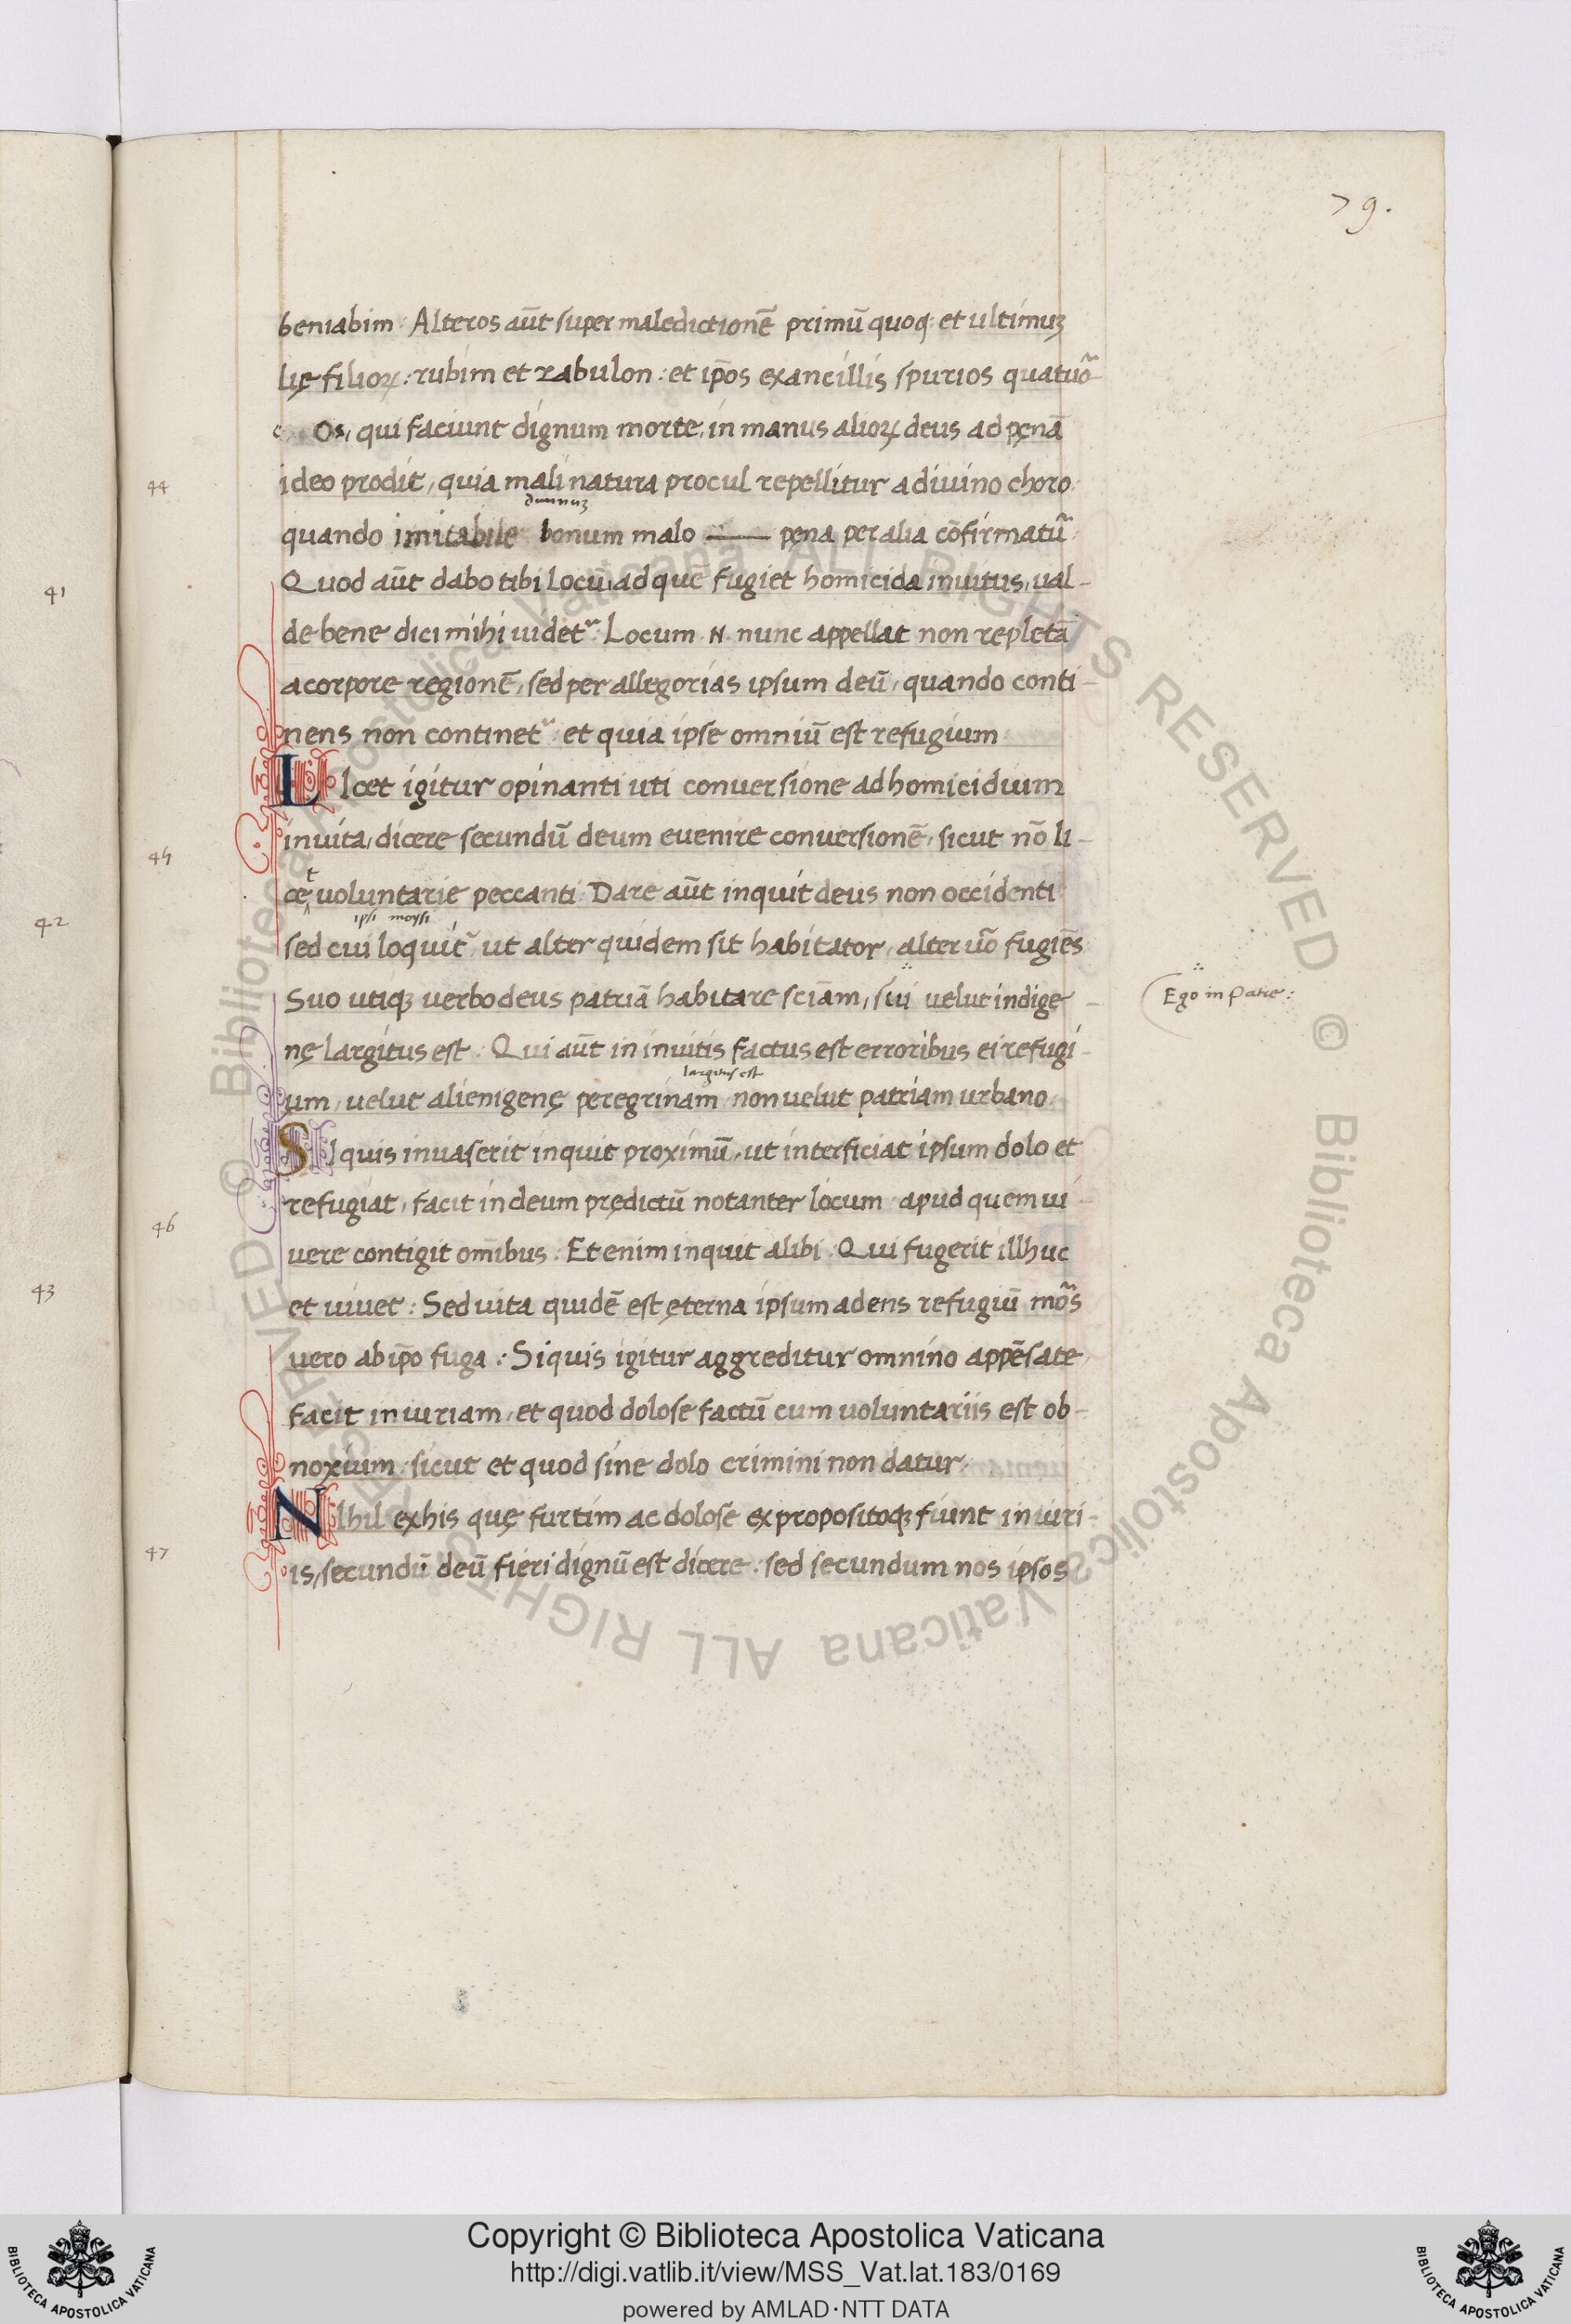 79.
beniabim : Alteros aūt super maledictionē primū quoq; et ultimuʒ
lię filioꝝ : rubim et zabulon : et ip̄os ex ancillis spurios quatuõ
Os, qui faciunt dignum morte, in manus alioꝝ deus ad pęnā
44
ideo prodit, quia mali natura procul repellitur a diuino choro :
quando imitabile bonum malo —— pęna per alia cōfirmatũ :
41
Quod aūt dabo tibi locū, ad quē fugiet homicida inuitus, ual-
de bene dici mihi uidetᷣ : Locum .N. nunc appellat non repletā
a corpore regionē, sed per allegorias ipsum deū, quando conti-
nens non continetᷣ : et quia ipse omniū est refugium :
LIcet igitur opinanti uti conuersione ad homicidium
45
inuita, dicere secundū deum euenire conuersionē, sicut nō li-
t
ce^ uoluntarie peccanti : Dare aūt inquit deus non occidenti :
42
ipsi moysi
sed cui loquitᷣ ut alter quidem sit habitator, alter uō fugiēs
Suo utiqꝫ uerbo deus patriā habitare sciām, sui uelut indige-
Ego in patre :
nę largitus est . Qui aūt in inuitis factus est erroribus ei refugi-
largitus est
um, uelut alienigenę peregrinam non uelut patriam urbano :
SI quis inuaserit inquit proximū, ut interficiat ipsum dolo et
refugiat, facit in deum prędictū notanter locum apud quem ui-
46
uere contigit om̄ibus : Etenim inquit alibi : Qui fugerit illhuc
43
et uiuet : Sed uita quidē est ęterna ipsum adens refugiū mõs
uero ab ip̄o fuga : Si quis igitur aggreditur omnino appēsate
facit iniuriam, et quod dolose factū cum uoluntariis est ob-
noxium : sicut et quod sine dolo crimini non datur :
NIhil ex his quę furtim ac dolose ex propositoqꝫ fiunt iniuri-
47
is, secundū deū fieri dignū est dicere : sed secundum nos ipsos
© Biblioteca Apostolica Vaticana ALL RIGHTS RESERVED © Biblioteca Apostolica Vaticana ALL RIGHTS RESERVED
BIBLIOTECA APOSTOLICA VATICANA
Copyright © Biblioteca Apostolica Vaticana
http://digi.vatlib.it/view/MSS_Vat.lat.183/0169
powered by AMLAD·NTT DATA
BIBLIOTECA APOSTOLICA VATICANA